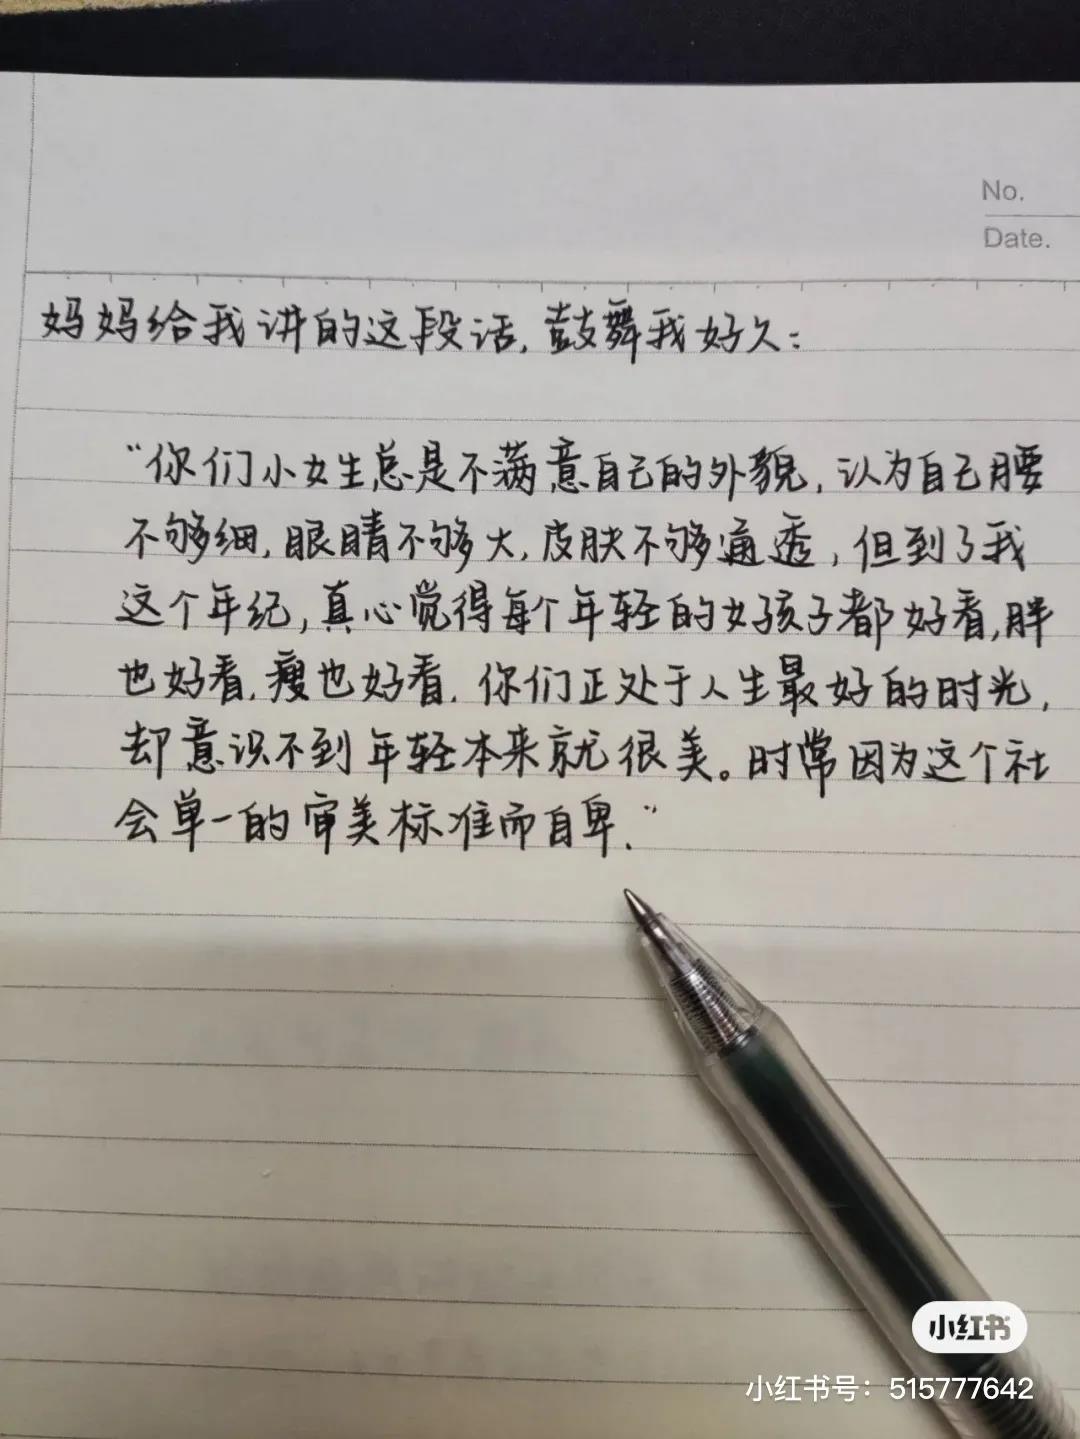 No.
Date.
妈妈给我讲的这段话,鼓舞我好久:
“你们小女生总是不满意自己的外貌,认为自己腰
不够细,眼睛不够大,皮肤不够通透,但到了我
这个年纪,真心觉得每个年轻的女孩子都好看,胖
也好看.瘦也好看.你们正处于人生最好的时光,
却意识不到年轻本来就很美。时常因为这个社
会单一的审美标准而自卑.”
小红书
小红书号：515777642